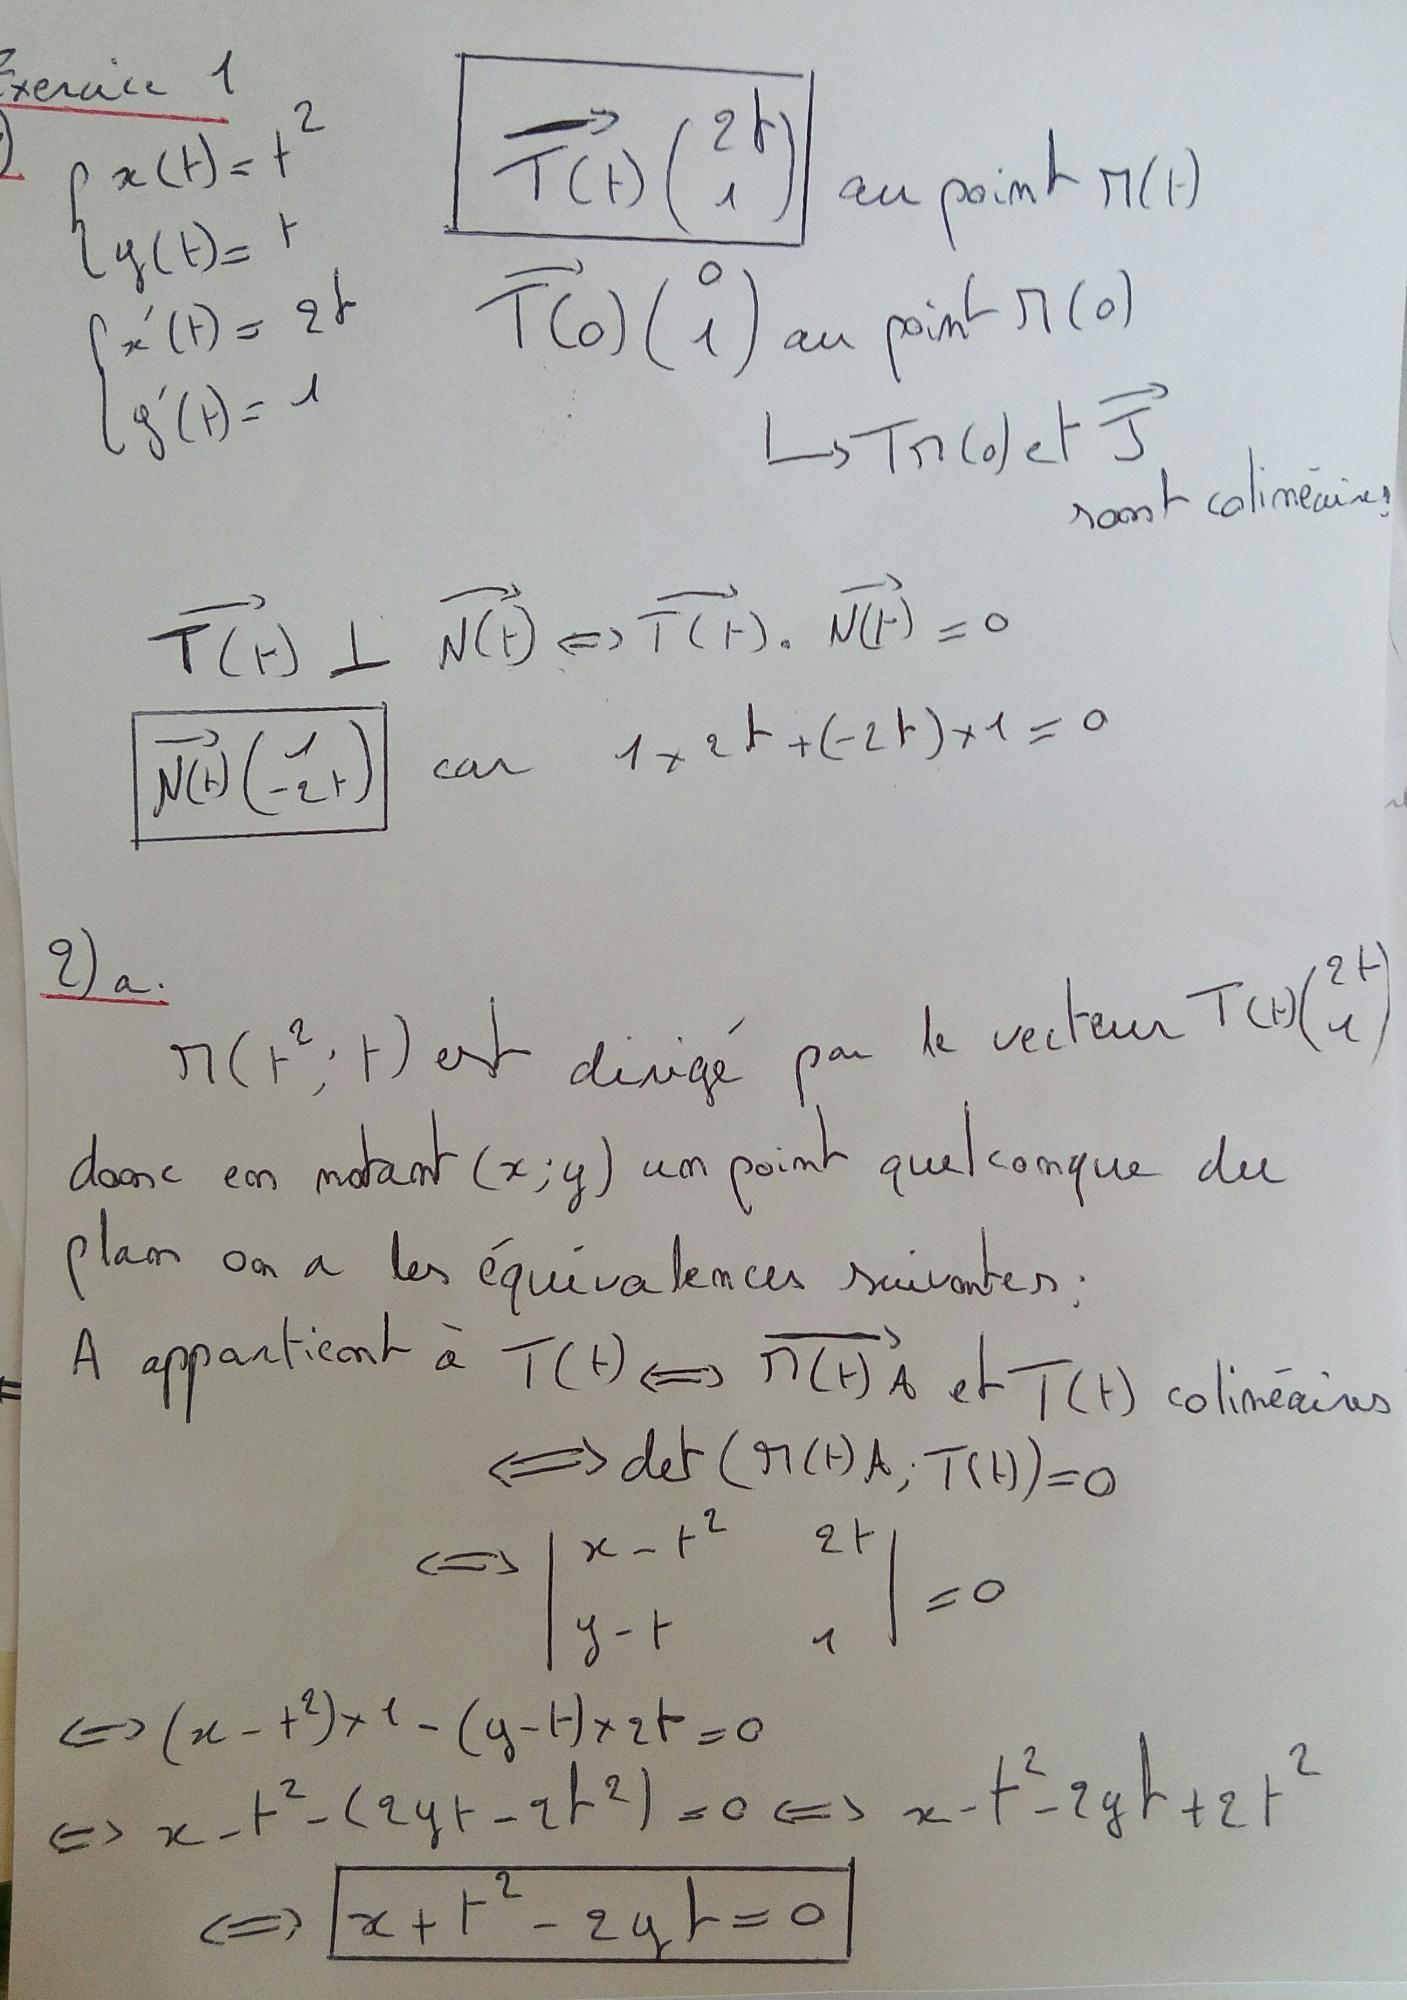 Exercice 1
) { x(t) = t²
{ y(t) = t
{ x'(t) = 2t
{ y'(t) = 1
T(t) (2t 1) au point M(t)
T(0) (0 1) au point M(0)
↳ TM(0) et J
sont colinéaires
T(t) ⊥ N(t) ⇔ T(t) . N(t) = 0
N(t) (1 -2t) car 1 × 2t + (-2t) × 1 = 0
2) a.
M(t² ; t) est dirigé par le vecteur T(t) (2t 1)
donc en notant (x ; y) un point quelconque du
plan on a les équivalences suivantes :
A appartient à T(t) ⇔ M(t)A et T(t) colinéaires
⇔ det (M(t)A ; T(t)) = 0
⇔ | x - t² 2t |
| y - t 1 | = 0
⇔ (x - t²) × 1 - (y - t) × 2t = 0
⇔ x - t² - (2yt - 2t²) = 0 ⇔ x - t² - 2yt + 2t²
⇔ x + t² - 2yt = 0